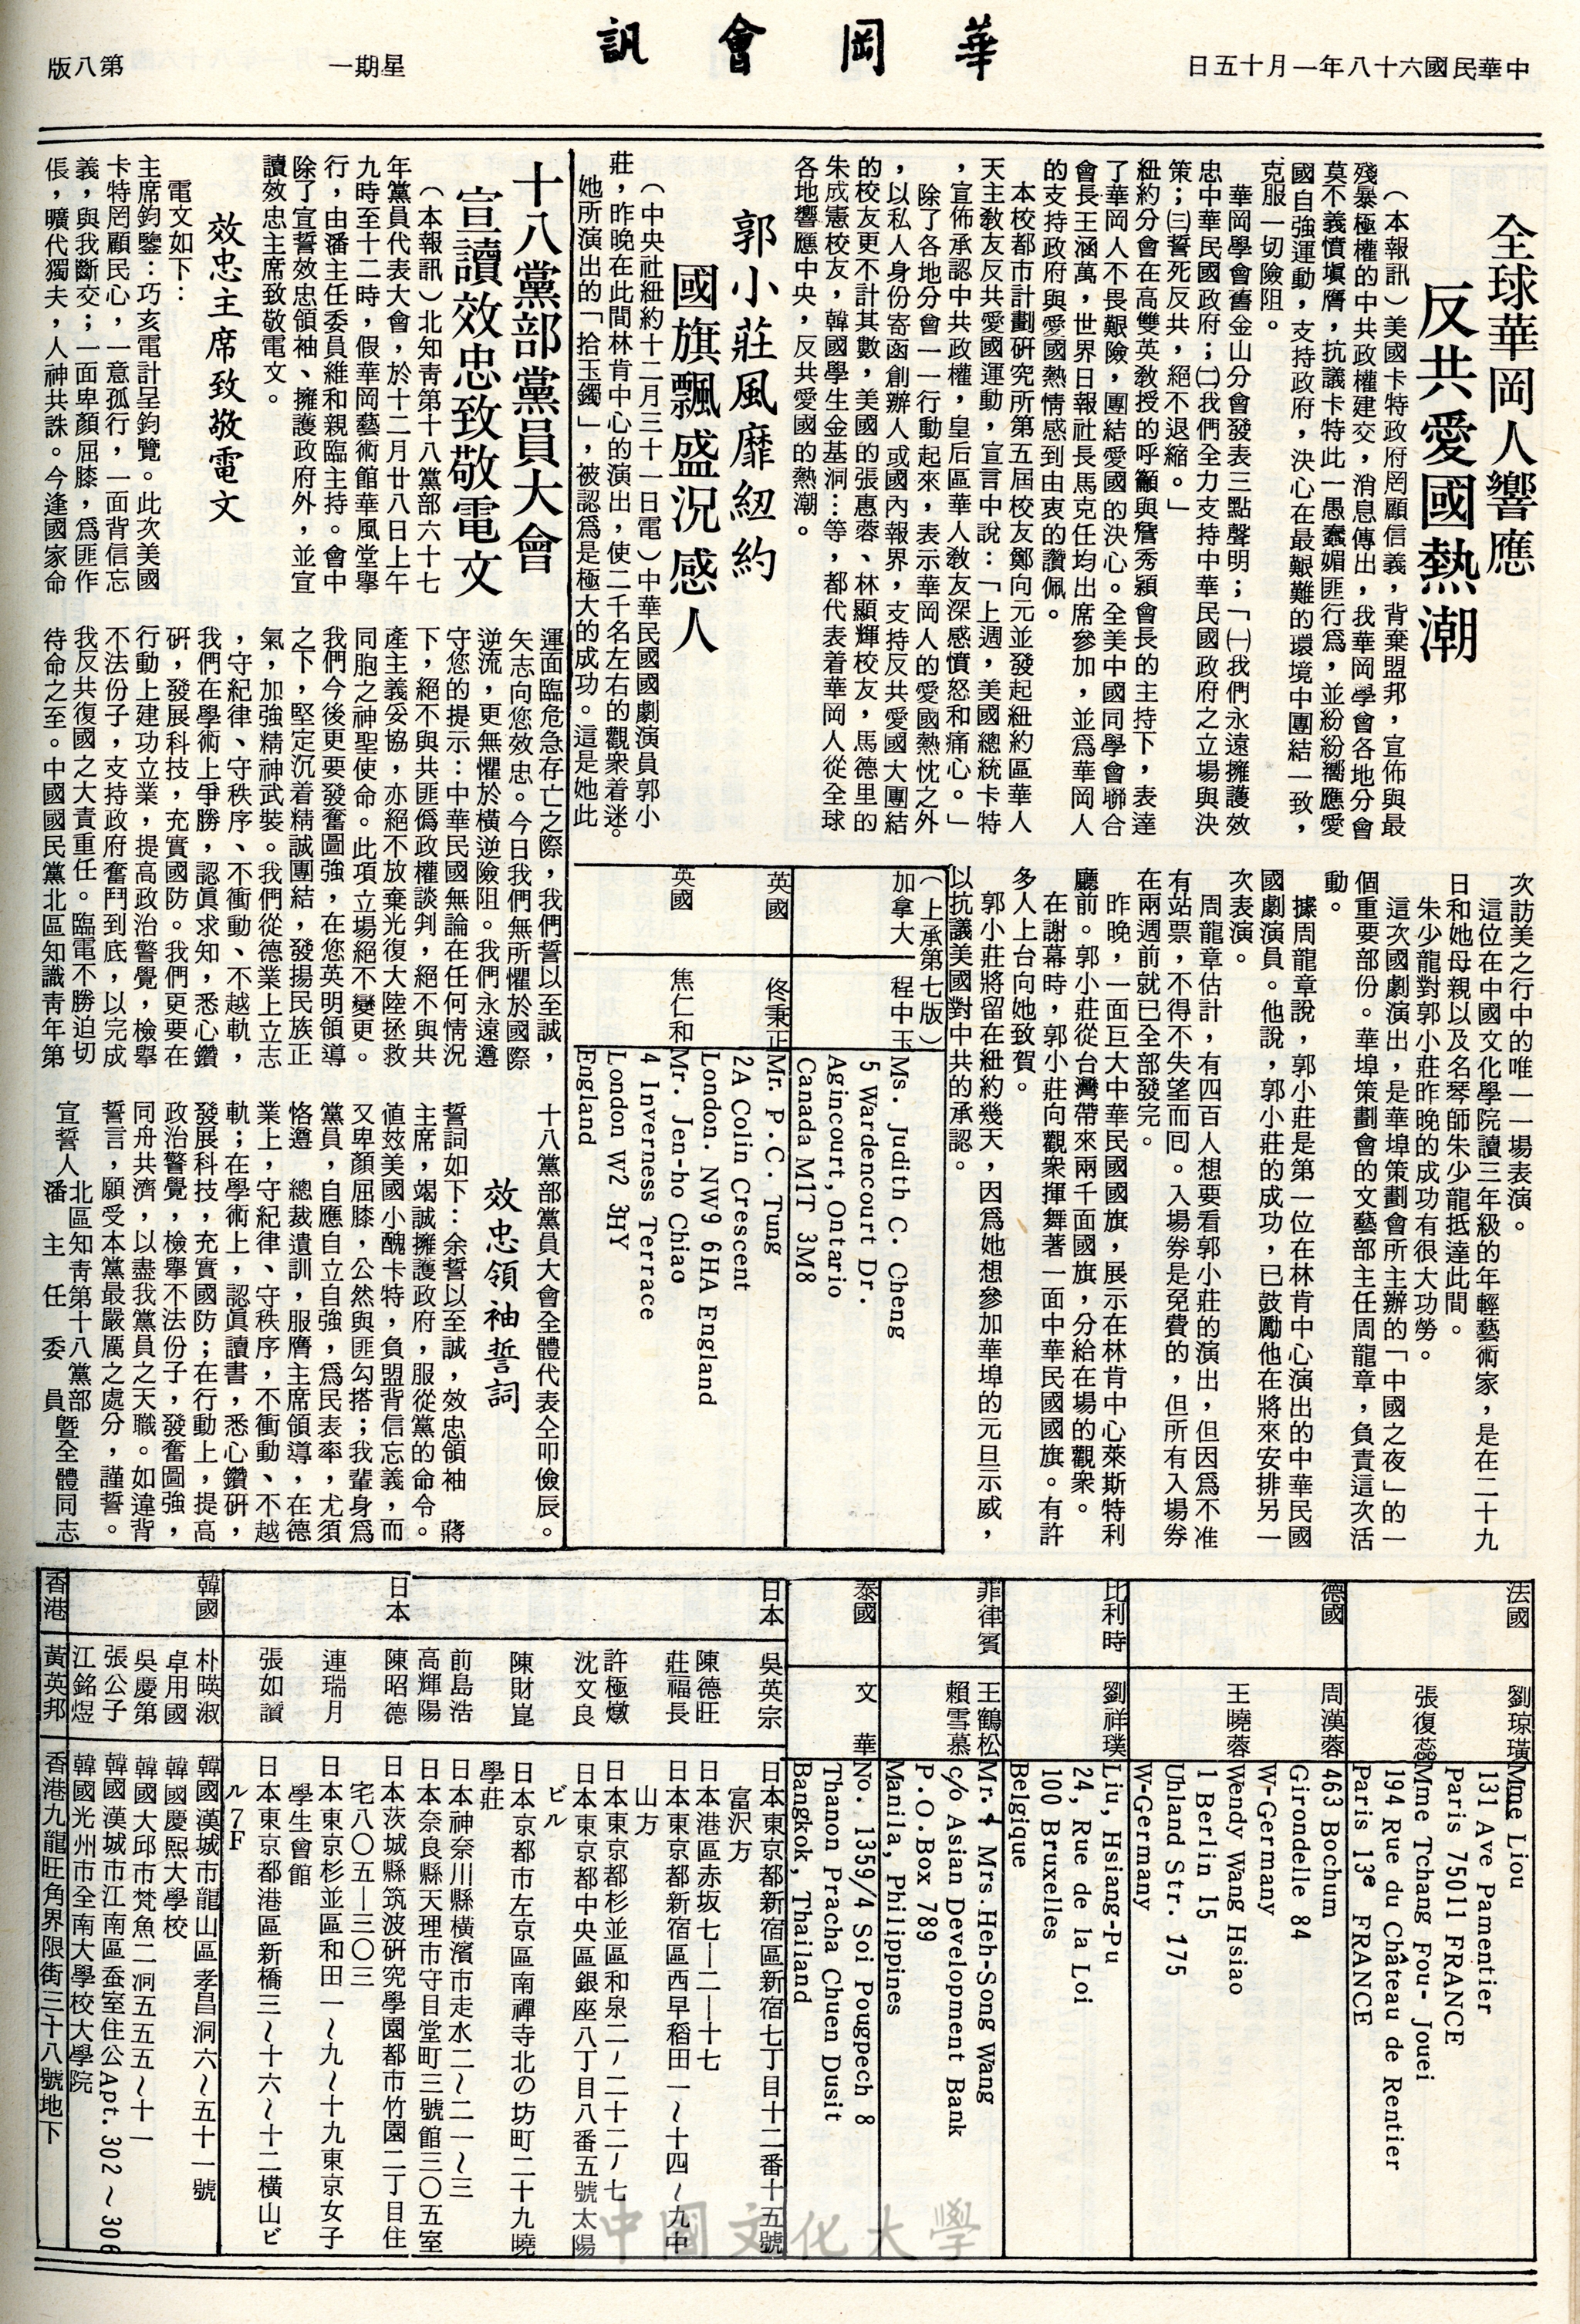 中華民國六十八年一月十五日
華岡會訊
星期一
第八版
全球華岡人響應
反共愛國熱潮
（本報訊）美國卡特政府罔顧信義，背棄盟邦，宣佈與最
殘暴極權的中共政權建交，消息傳出，我華岡學會各地分會
莫不義憤塡膺，抗議卡特此一愚蠢媚匪行爲，並紛紛響應愛
國自強運動，支持政府，決心在最艱難的環境中團結一致，
克服一切險阻。
華岡學會舊金山分會發表三點聲明；「㈠我們永遠擁護效
忠中華民國政府；㈡我們全力支持中華民國政府之立場與決
策；㈢誓死反共，絕不退縮。」
紐約分會在高雙英教授的呼籲與詹秀穎會長的主持下，表達
了華岡人不畏艱險，團結愛國的決心。全美中國同學會聯合
會長王涵萬，世界日報社長馬克任均出席參加，並爲華岡人
的支持政府與愛國熱情感到由衷的讚佩。
本校都市計劃研究所第五屆校友鄭向元並發起紐約區華人
天主教友反共愛國運動，宣言中說：「上週，美國總統卡特
，宣佈承認中共政權，皇后區華人教友深感憤怒和痛心。」
除了各地分會一一行動起來，表示華岡人的愛國熱忱之外
，以私人身份寄函創辦人或國內報界，支持反共愛國大團結
的校友更不計其數，美國的張惠蓉、林顯輝校友，馬德里的
朱成憲校友，韓國學生金基洞…等，都代表着華岡人從全球
各地響應中央，反共愛國的熱潮。
郭小莊風靡紐約
國旗飄盛況感人
（中央社紐約十二月三十一日電）中華民國國劇演員郭小
莊，昨晚在此間林肯中心的演出，使二千名左右的觀衆着迷。
她所演出的「拾玉鐲」，被認爲是極大的成功。這是她此
次訪美之行中的唯一一場表演。
這位在中國文化學院讀三年級的年輕藝術家，是在二十九
日和她母親以及名琴師朱少龍抵達此間。
朱少龍對郭小莊昨晚的成功有很大功勞。
這次國劇演出，是華埠策劃會所主辦的「中國之夜」的一
個重要部份。華埠策劃會的文藝部主任周龍章，負責這次活
動。
據周龍章說，郭小莊是第一位在林肯中心演出的中華民國
國劇演員。他說，郭小莊的成功，已鼓勵他在將來安排另一
次表演。
周龍章估計，有四百人想要看郭小莊的演出，但因爲不准
有站票，不得不失望而囘。入場券是免費的，但所有入場券
在兩週前就已全部發完。
昨晚，一面巨大中華民國國旗，展示在林肯中心萊斯特利
廳前。郭小莊從台灣帶來兩千面國旗，分給在場的觀衆。
在謝幕時，郭小莊向觀衆揮舞著一面中華民國國旗。有許
多人上台向她致賀。
郭小莊將留在紐約幾天，因爲她想參加華埠的元旦示威，
以抗議美國對中共的承認。
十八黨部黨員大會
宣讀效忠致敬電文
（本報訊）北知靑第十八黨部六十七
年黨員代表大會，於十二月廿八日上午
九時至十二時，假華岡藝術館華風堂擧
行，由潘主任委員維和親臨主持。會中
除了宣誓效忠領袖、擁護政府外，並宣
讀效忠主席致敬電文。
效忠主席致敬電文
電文如下：
主席鈞鑒：巧亥電計呈鈞覽。此次美國
卡特罔顧民心，一意孤行，一面背信忘
義，與我斷交；一面卑顏屈膝，爲匪作
張，曠代獨夫，人神共誅。今逢國家命
運面臨危急存亡之際，我們誓以至誠，
矢志向您效忠。今日我們無所懼於國際
逆流，更無懼於橫逆險阻。我們永遠遵
守您的提示：中華民國無論在任何情況
下，絕不與共匪僞政權談判，絕不與共
產主義妥協，亦絕不放棄光復大陸拯救
同胞之神聖使命。此項立場絕不變更。
我們今後更要發奮圖強，在您英明領導
之下，堅定沉着精誠團結，發揚民族正
氣，加強精神武裝。我們從德業上立志
，守紀律、守秩序、不衝動、不越軌，
我們在學術上爭勝，認眞求知，悉心鑽
研，發展科技，充實國防。我們更要在
行動上建功立業，提高政治警覺，檢擧
不法份子，支持政府奮鬥到底，以完成
我反共復國之大責重任。臨電不勝迫切
待命之至。中國國民黨北區知識靑年第
十八黨部黨員大會全體代表仝叩儉辰。
效忠領袖誓詞
誓詞如下：余誓以至誠，效忠領袖　蔣
主席，竭誠擁護政府，服從黨的命令。
値玆美國小醜卡特，負盟背信忘義，而
又卑顏屈膝，公然與匪勾搭；我輩身爲
黨員，自應自立自強，爲民表率，尤須
恪遵　總裁遺訓，服膺主席領導，在德
業上，守紀律、守秩序，不衝動、不越
軌；在學術上，認眞讀書，悉心鑽研，
發展科技，充實國防；在行動上，提高
政治警覺，檢擧不法份子，發奮圖強，
同舟共濟，以盡我黨員之天職。如違背
誓言，願受本黨最嚴厲之處分，謹誓。
宣誓人北區知靑第十八黨部
潘主任委員暨全體同志
（上承第七版）
加拿大　程中玉
Ms. Judith C. Cheng
5 Wardencourt Dr.
Agincourt, Ontario
Canada M1T 3M8
英國　佟秉正
Mr. P.C. Tung
2A Colin Crescent
London. NW9 6HA England
英國　焦仁和
Mr. Jen-ho Chiao
4 Inverness Terrace
London W2 3HY
England
法國　劉琼璜
Mme Liou
131 Ave Pamentier
Paris 75011 FRANCE
張復蕊
Mme Tchang Fou- Jouei
194 Rue du Château de Rentier
Paris 13e FRANCE
德國　周漢蓉
463 Bochum
Girondelle 84
W-Germany
王曉蓉
Wendy Wang Hsiao
1 Berlin 15
Uhland Str. 175
W-Germany
比利時　劉祥璞
Liu, Hsiang-Pu
24, Rue de la Loi
100 Bruxelles
Belgique
菲律賓　王鶴松
賴雪慕
Mr. & Mrs. Heh-Song Wang
c/o Asian Development Bank
P.O.Box 789
Manila, Philippines
泰國　文　華
No. 1359/4 Soi Pougpech 8
Thanon Pracha Chuen Dusit
Bangkok, Thailand
日本　吳英宗　日本東京都新宿區新宿七丁目十二番十五號
富沢方
陳德旺　日本港區赤坂七—二—十七
莊福長　日本東京都新宿區西早稻田一～十四～九中
山方
許極燉　日本東京都杉並區和泉二ノ二十二ノ七
沈文良　日本東京都中央區銀座八丁目八番五號太陽
ビル
陳財崑　日本京都市左京區南禪寺北の坊町二十九曉
學莊
前島浩　日本神奈川縣橫濱市走水二～二一～三
高輝陽　日本奈良縣天理市守目堂町三號館三〇五室
日本　陳昭德　日本茨城縣筑波研究學園都市竹園二丁目住
宅八〇五—三〇三
連瑞月　日本東京杉並區和田一～九～十九東京女子
學生會館
張如讚　日本東京都港區新橋三～十六～十二橫山ビ
ル7F
韓國　朴暎淑　韓國漢城市龍山區孝昌洞六～五十一號
卓用國　韓國慶熙大學校
吳慶第　韓國大邱市梵魚二洞五五五～十一
張公子　韓國漢城市江南區蚕室住公Apt. 302～306
江銘煜　韓國光州市全南大學校大學院
香港　黃英邦　香港九龍旺角界限街三十八號地下
中國文化大學